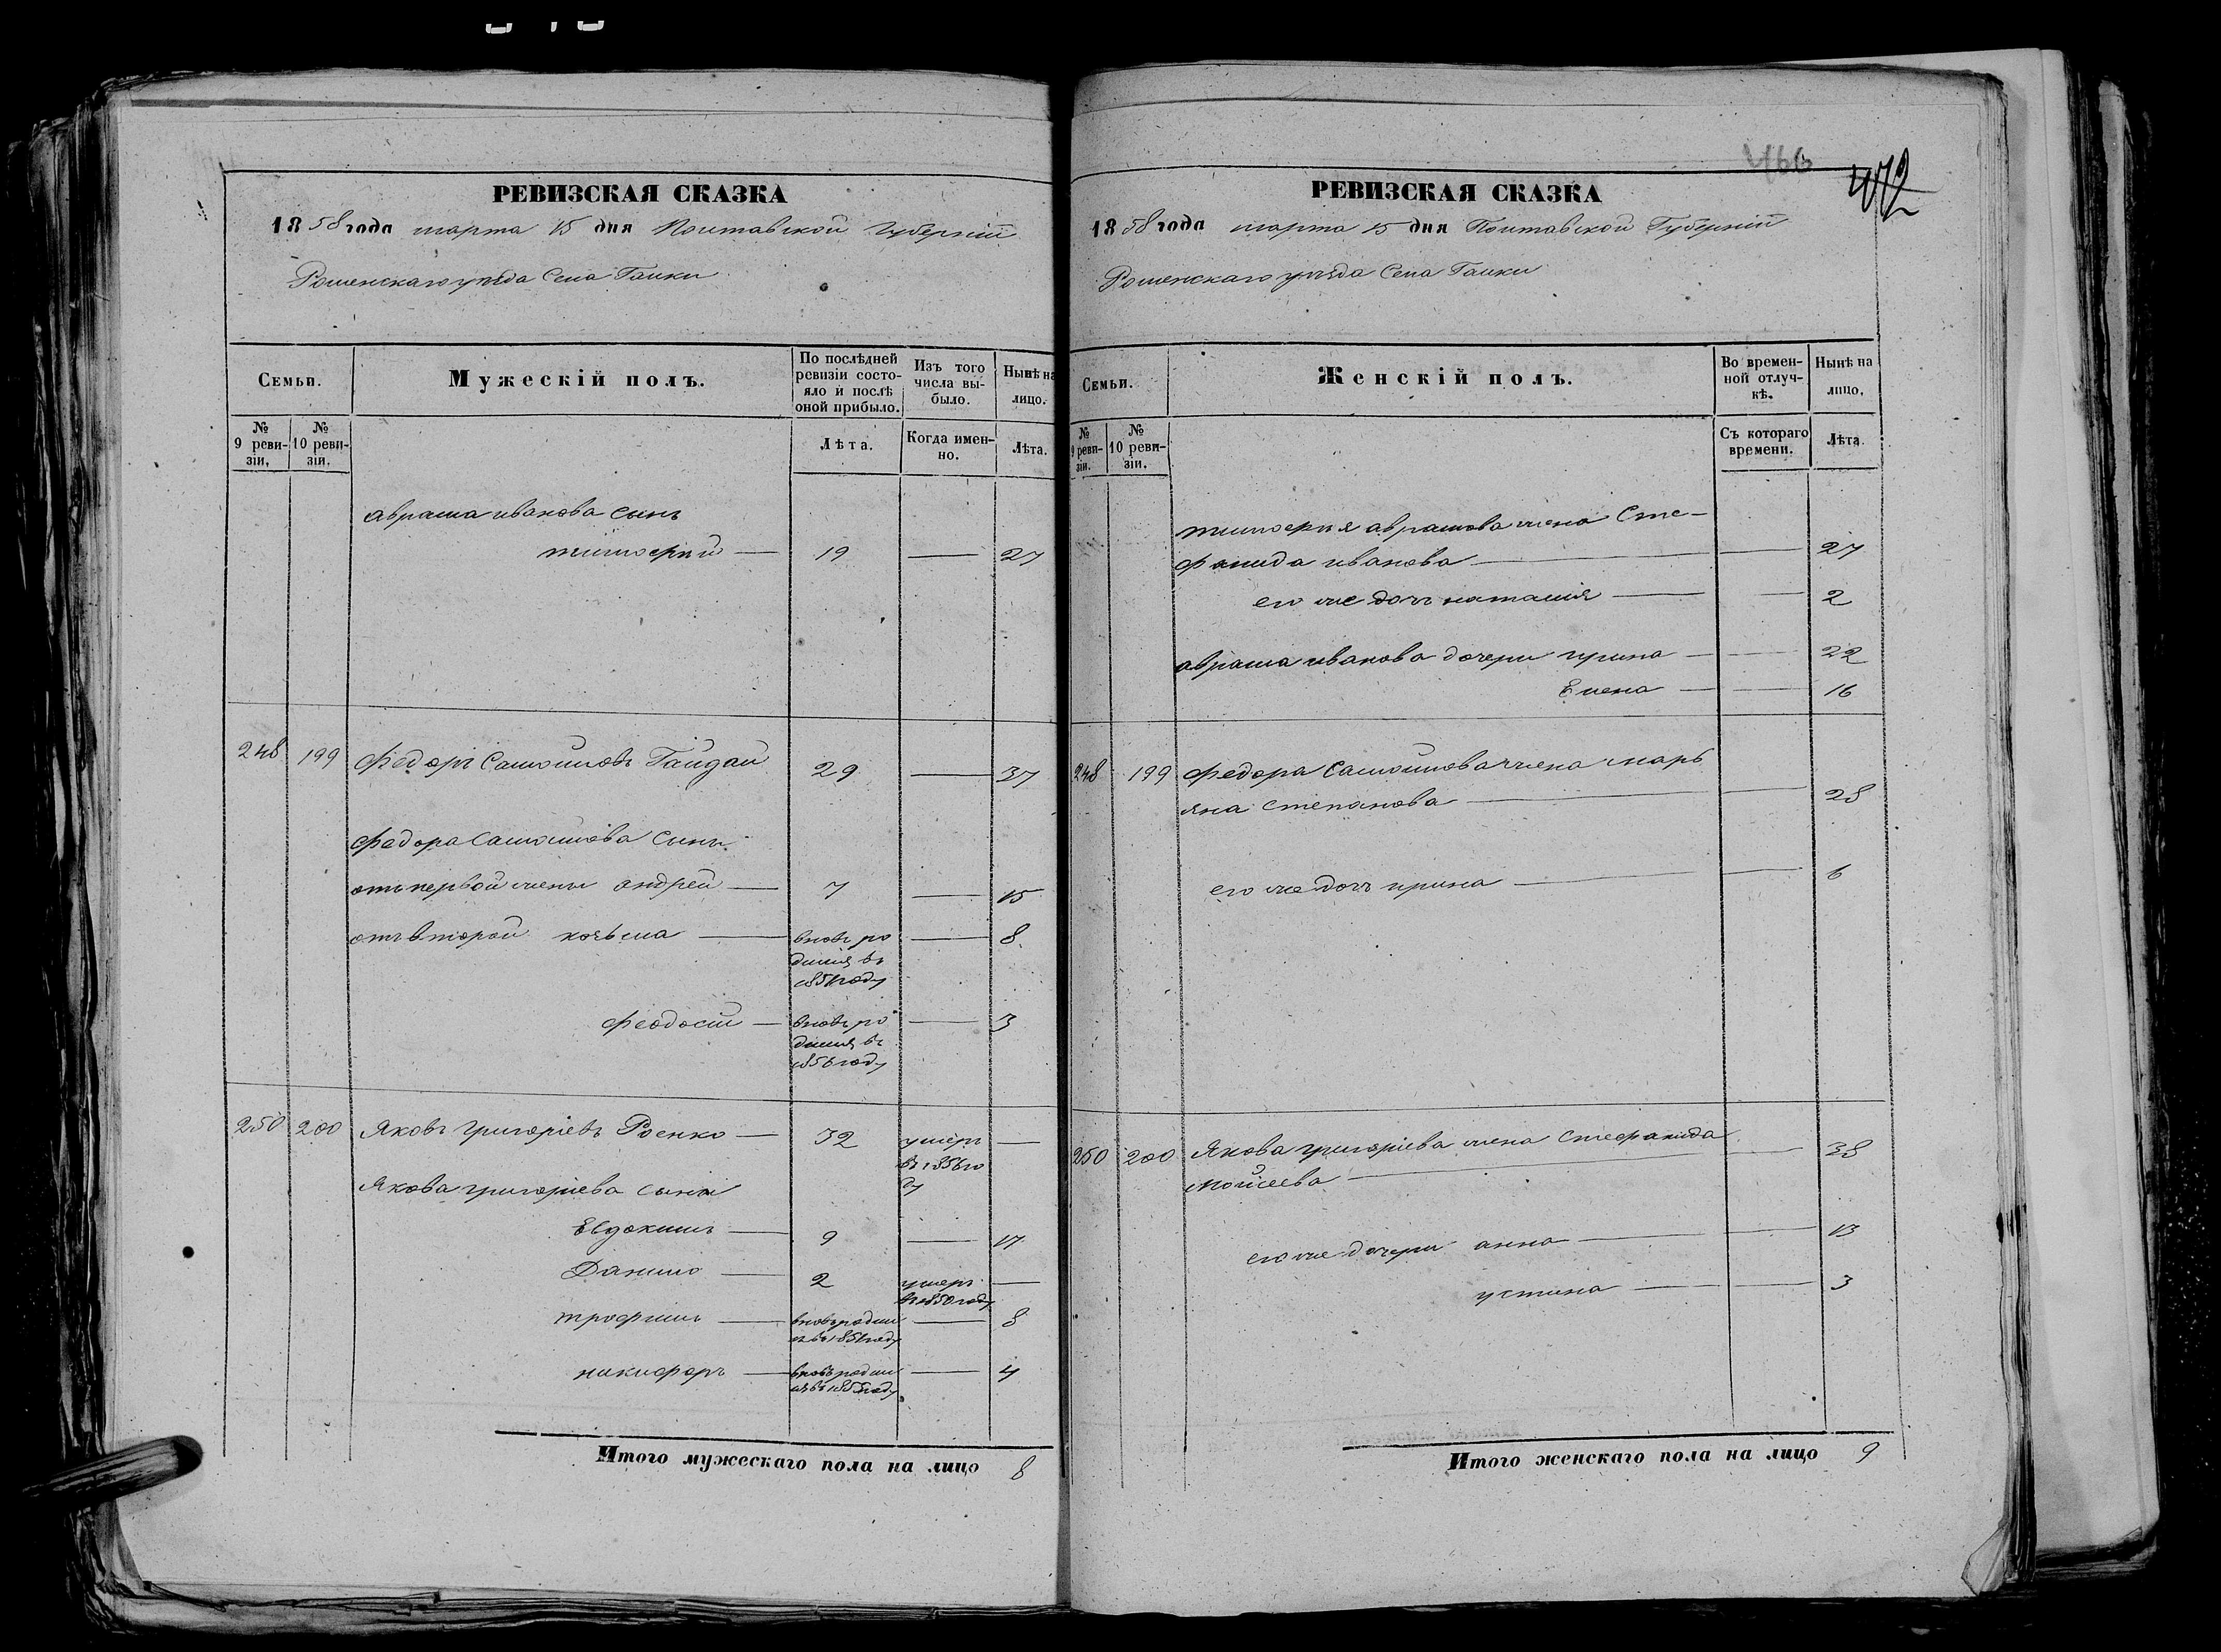 РЕВИЗСКАЯ СКАЗКА
1858 года марта 15 дня Полтавской Губерніи
Роменскаго уѣзда Села Галки
Семьи.
Мужескій полъ.
По послѣдней ревизіи состояло и послѣ оной прибыло.
Изъ того числа выбыло.
Нынѣ на лицо.
№ 9 ревизіи.
№ 10 ревизіи.
Лѣта.
Когда именно.
Лѣта.
Аврама Иванова сынъ
тимофей — 19 — 27
248 199 Федоръ Самойловъ Гайдай 29 — 37
Федора Самойлова сыны
отъ первой жены андрей — 7 — 15
отъ второй козьма — вновь ро — 8
дился въ
1851 году
феодосій — вновь ро — 3
дился въ
1856 году
250 200 Яковъ григоріевъ Роенко — 32 умеръ —
въ 1856 го
ду
Якова григоріева сыны
Евдокимъ — 9 — 17
Данило — 2 умеръ —
въ 1850 году
трофимъ — вновь родил — 8
ся въ 1851 году
никифоръ — вновь родил — 4
ся въ 1855 году
Итого мужескаго пола на лицо 8
466
472
РЕВИЗСКАЯ СКАЗКА
1858 года марта 15 дня Полтавской Губерніи
Роменскаго уѣзда Села Галки
Семьи.
Женскій полъ.
Во временной отлучкѣ.
Нынѣ на лицо.
№ 9 ревизіи.
№ 10 ревизіи.
Съ котораго времени.
Лѣта.
тимофея аврамова жена Сте-
фанида иванова — — 27
его же дочь наталія — — 2
аврама иванова дочери ирина — — 22
Елена — — 16
248 199 федора Самойлова жена марь
яна степанова — — 28
его же дочь ирина — — 6
250 200 Якова григоріева жена Стефанида — 38
Моисеева —
его же дочери анна — — 13
устина — — 3
Итого женскаго пола на лицо 9